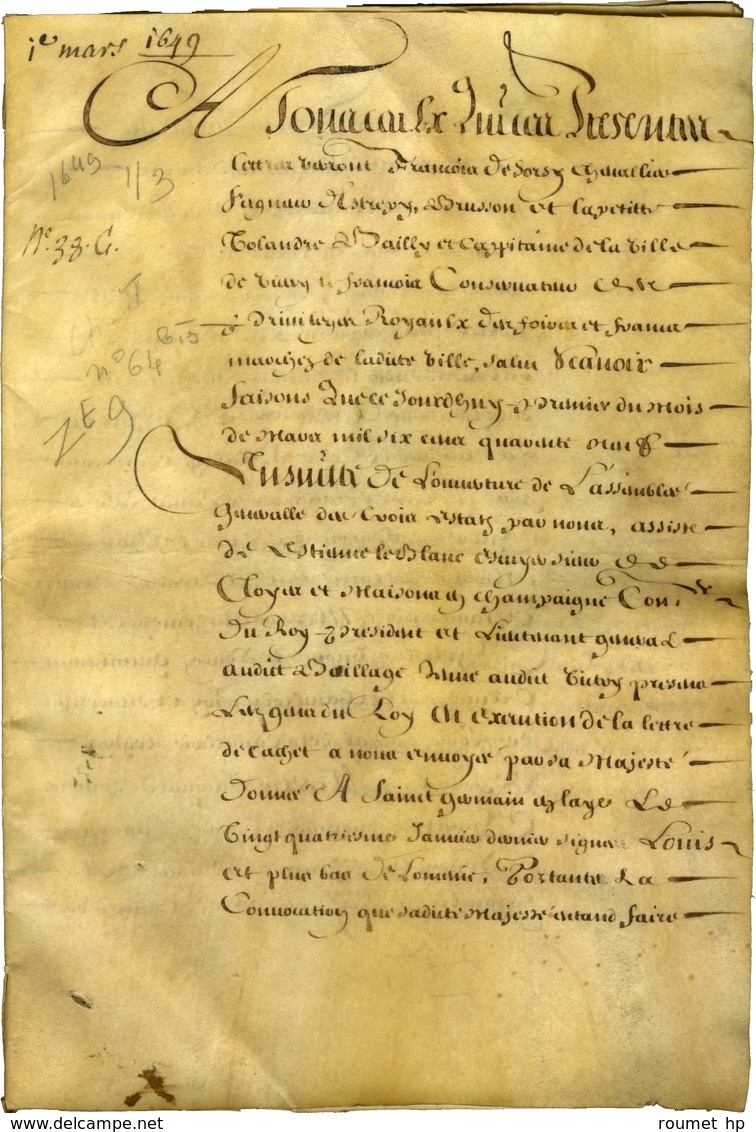 1er mars 1649
A Tous ceulx qui ces presentes
lettres verront François de Joisy chevallier
seigneur d'Estrepy, Brusson et la petitte
Bailly et cappitaine de la ville
de Vitry le françois Conservateur des
privileges Royaulx des foires et frances
marchez de ladicte ville, salut scavoir
faisons que ce Jourdhuy premier du mois
de Mars mil six cens quarante neuf
Ensuitte de l'ouverture de l'assemblée
generalle des trois estatz par nous, assisté
de Estienne le Blanc escuyer sieur de
Cloyes et Maisons en champaigne Con.er
du Roy president et Lieutenant general
audict Baillage audict Vitry presens
Les gens du Roy en execution de la lettre
de cachet a nous envoyée par sa Majesté
donnée A Sainct germain en laye Le
Vingt quatriesme Janvier dernier signée Louis
et plus bas De Lomenie, Portante La
Convocation que sadicte Majesté entand faire
1649 1/3
No. 38. G.
II
no 64 bis
ZE9
roumet hp